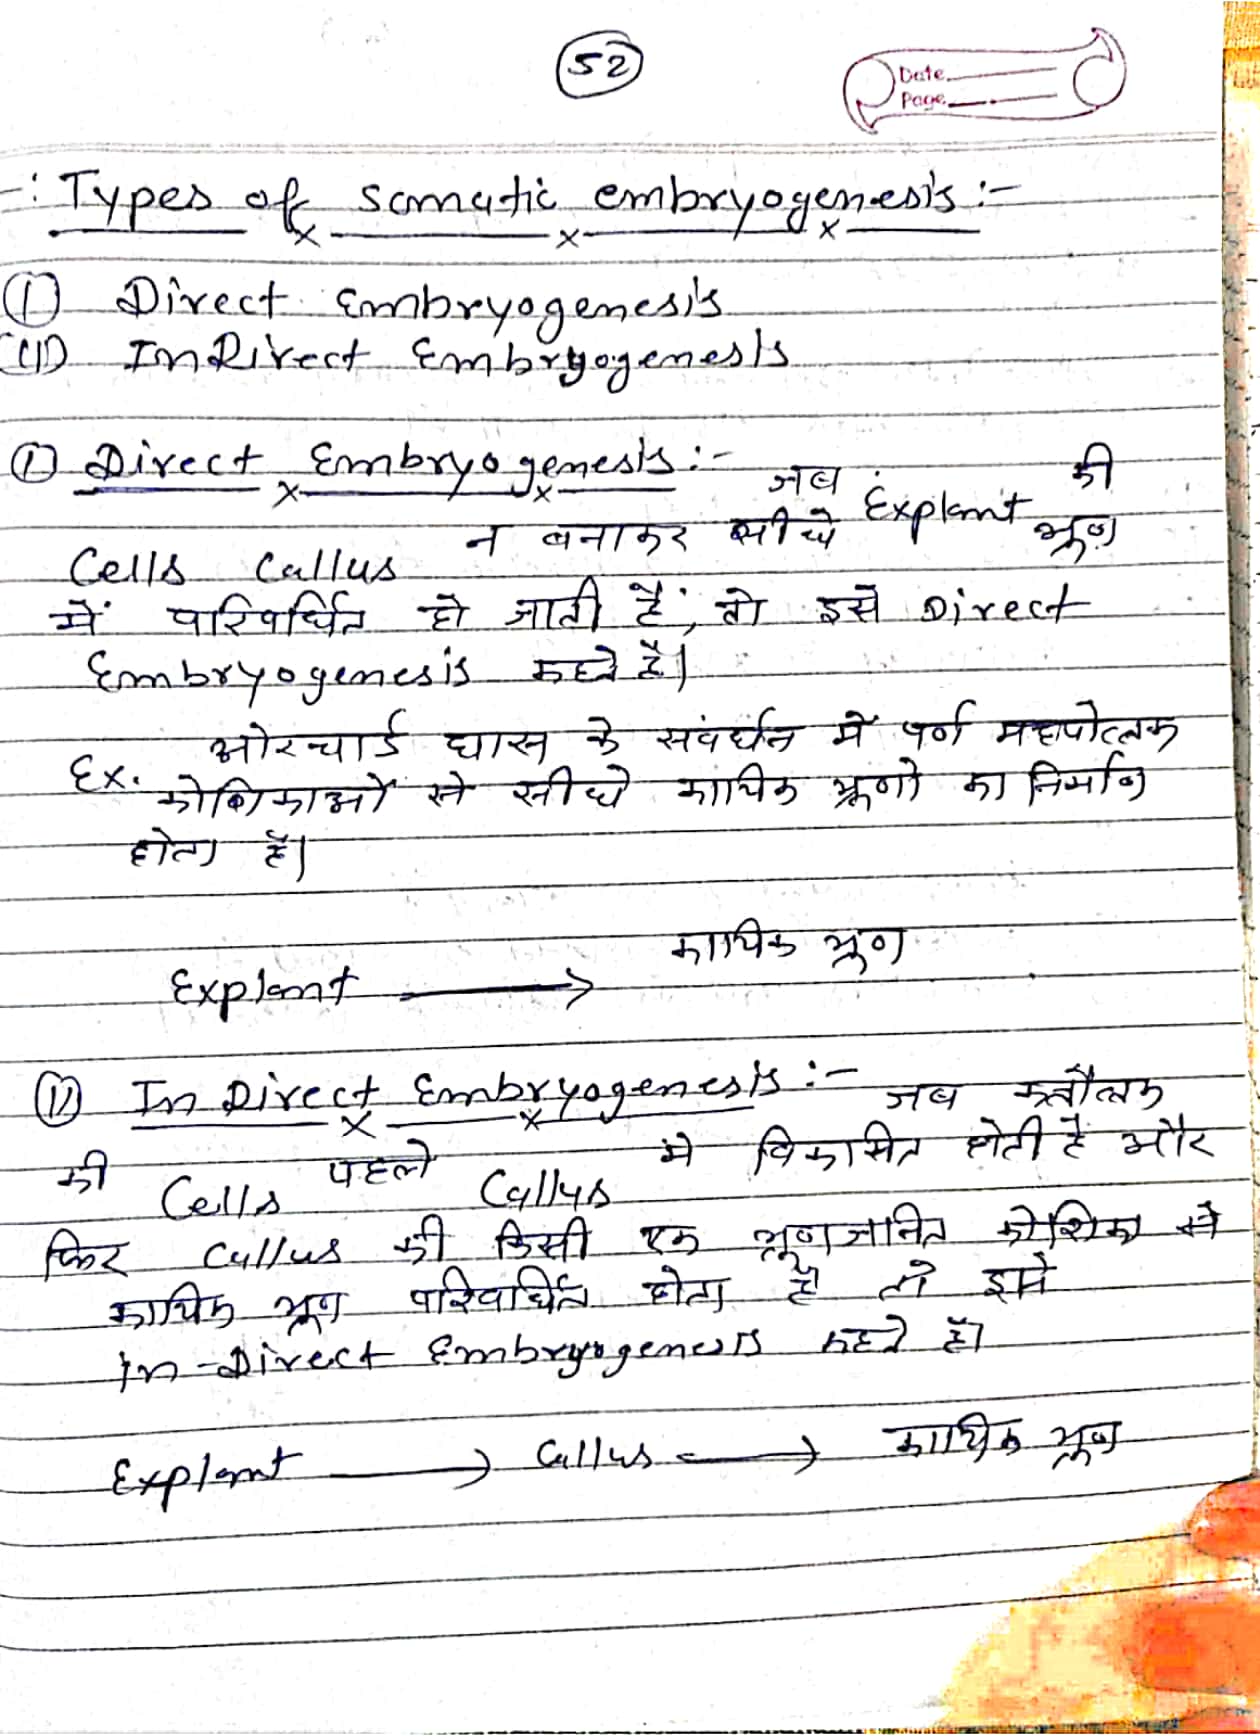 52
Date
Page
-: Types of somatic embryogenesis :-
(I) Direct Embryogenesis
(II) InDirect Embryogenesis
(I) Direct Embryogenesis :- जब Explant की
Cells Callus न बनाकर सीधे भ्रूण
में परिवर्धित हो जाती हैं, तो इसे Direct
Embryogenesis कहते है।
Ex. ओरचार्ड घास के संवर्धन में पर्ण मध्योत्तक
कोशिकाओं से सीधे कायिक भ्रूणो का निर्माण
होता है।
Explant → कायिक भ्रूण
(II) In Direct Embryogenesis :- जब
की Cells पहले Callus मे विकासित होती है और
फिर Callus की किसी एक भ्रूणजनित कोशिका से
कायिक भ्रूण परिवर्धित होता है तो इसे
In-Direct Embryogenesis कहते है।
Explant → Callus → कायिक भ्रूण